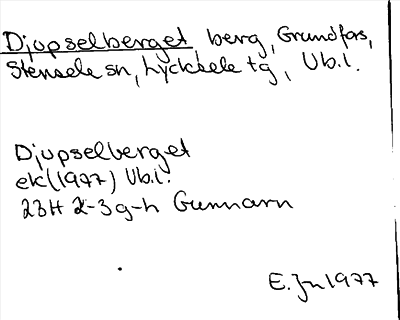 Djupselberget berg, Grundfors,
Stensele sn, Lycksele tg, Vb.l.
Djupselberget
ek(1977) Vb.l.
23H 2-3g-h Gunnarn
E.Jn 1977